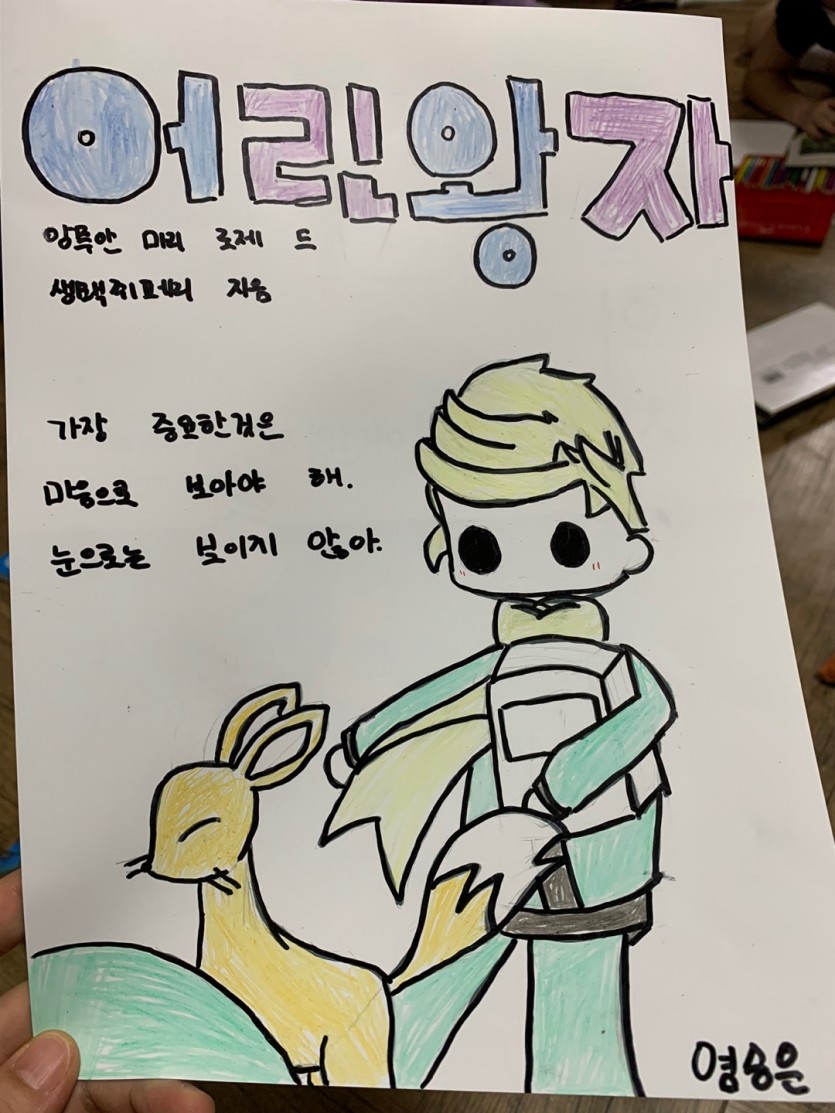 어린왕자
앙뚜안 마리 로제 드
생텍쥐페리 지음
가장 중요한것은
마음으로 보아야 해.
눈으로는 보이지 않아.
영승은